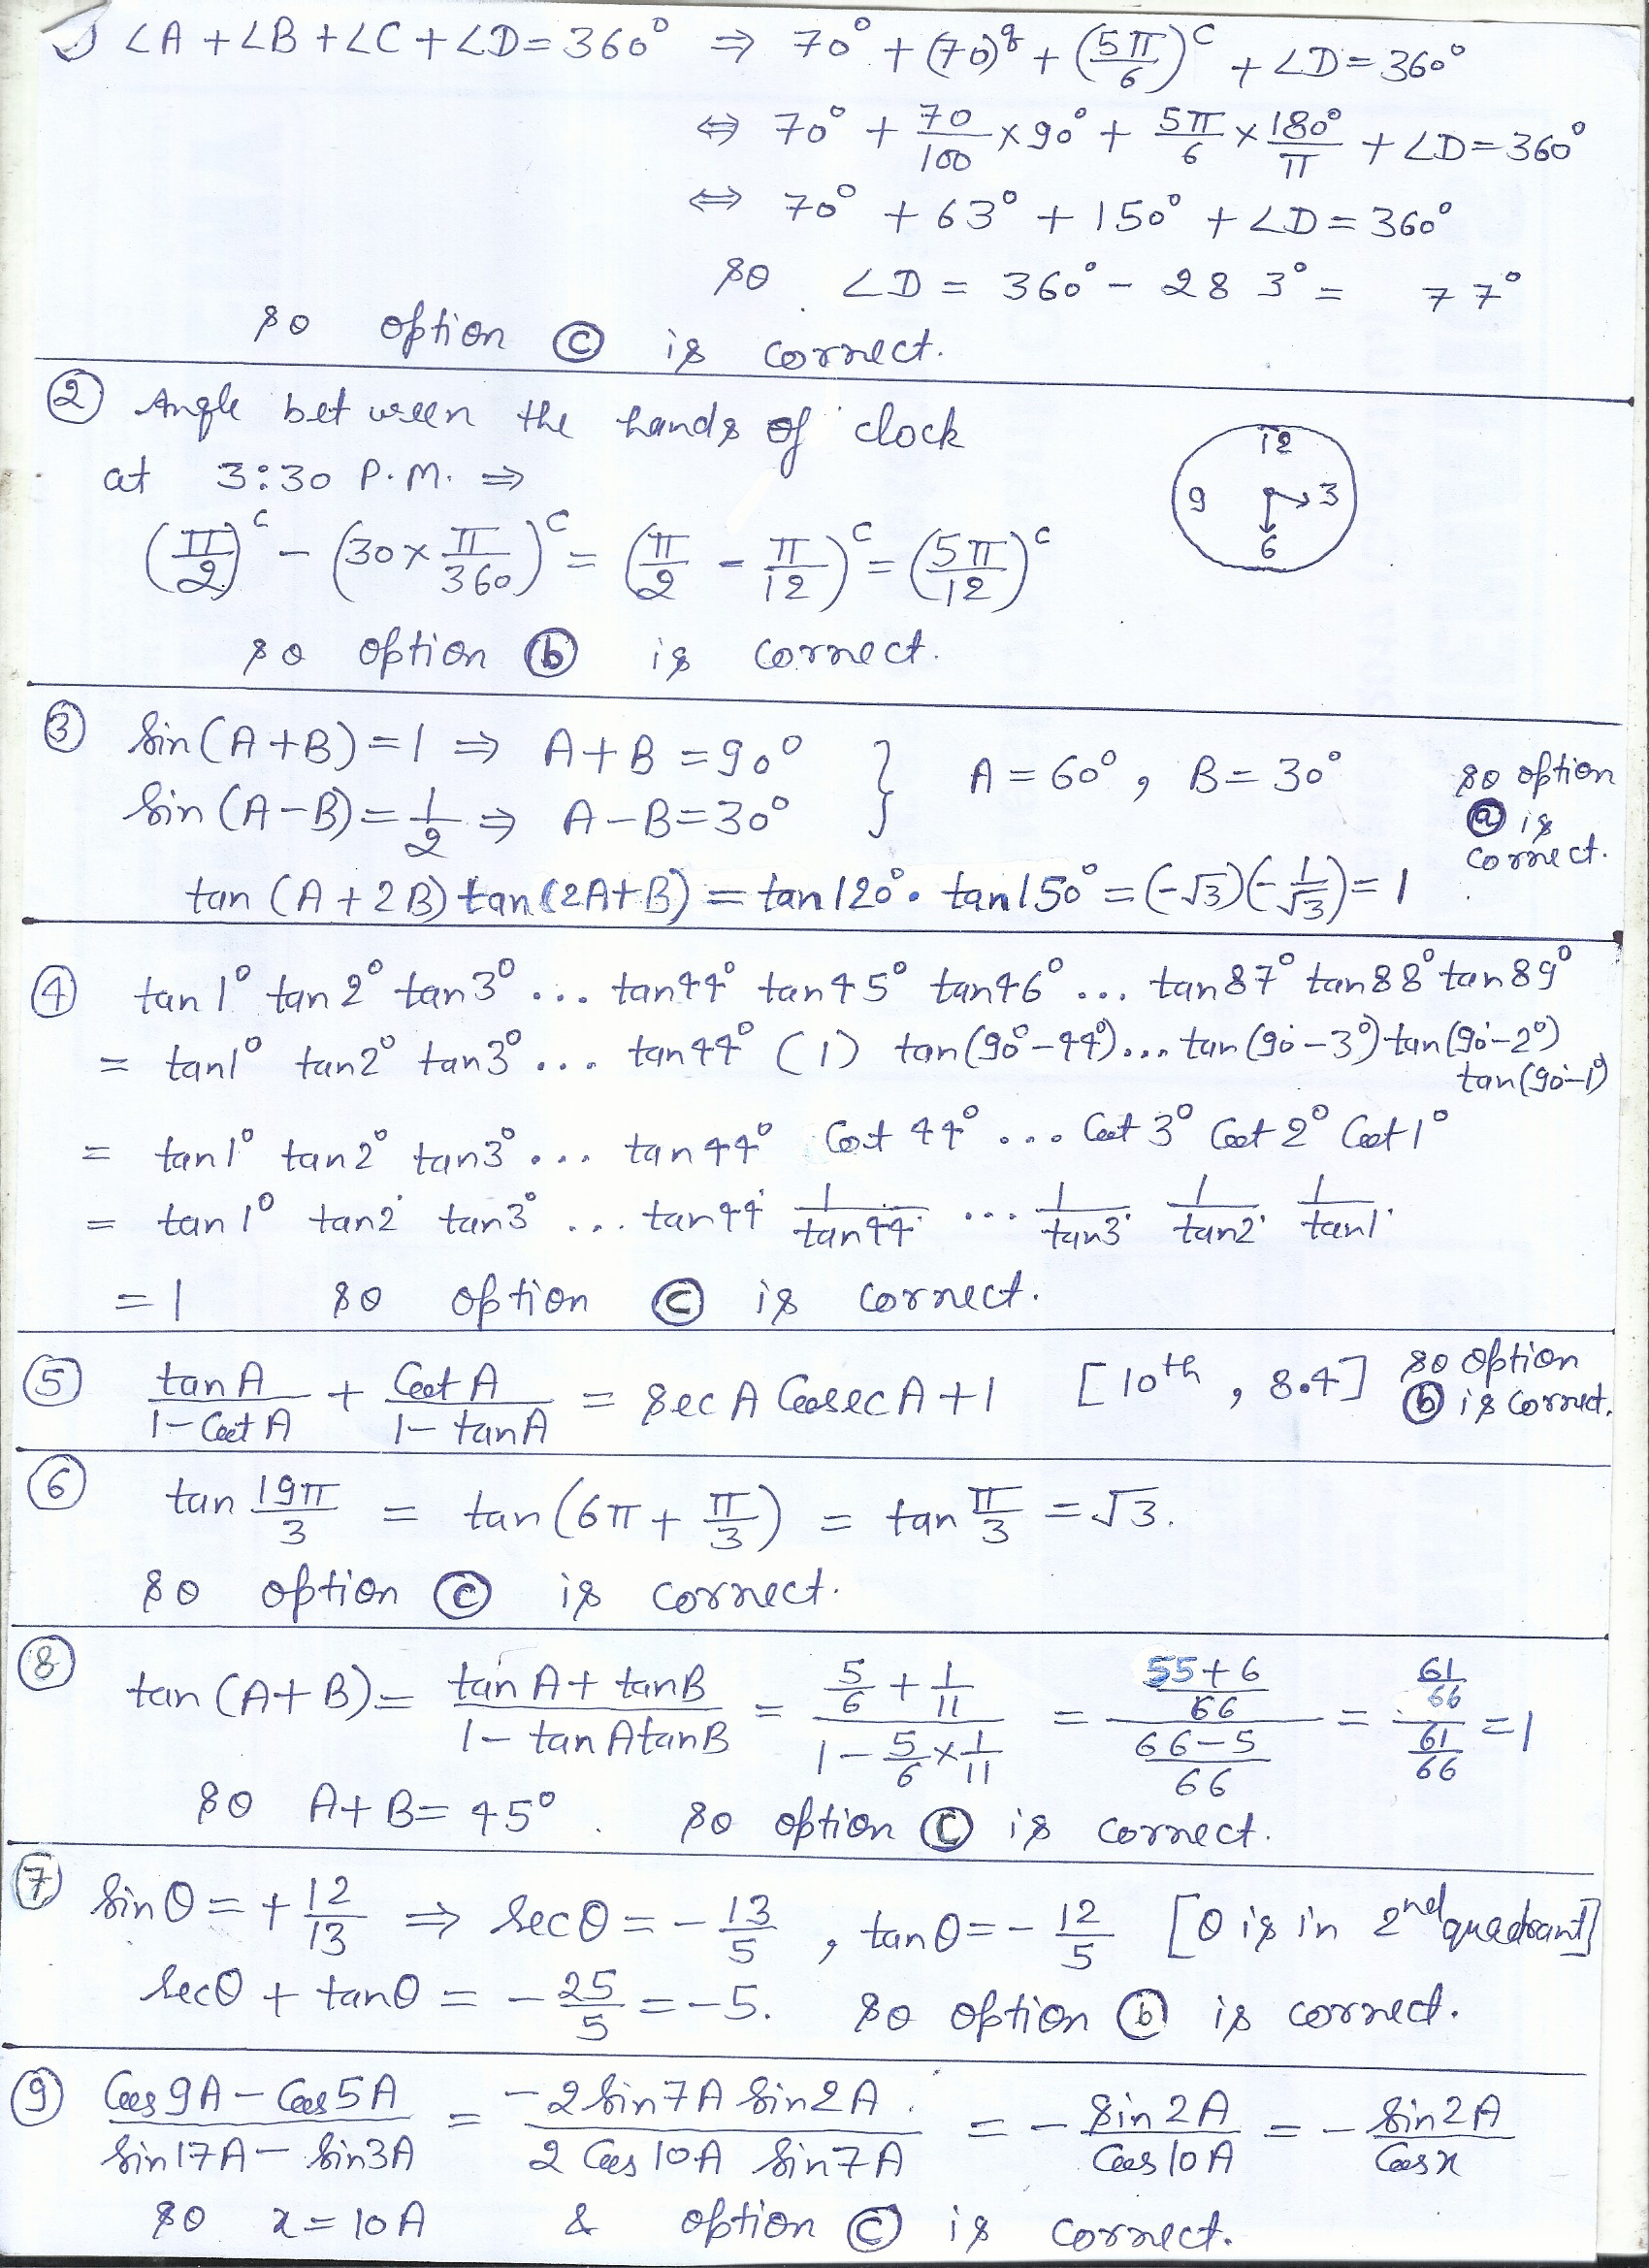 ∠A + ∠B + ∠C + ∠D = 360° ⇒ 70° + (70)^g + (5π/6)^c + ∠D = 360°
⇔ 70° + 70/100 × 90° + 5π/6 × 180°/π + ∠D = 360°
⇔ 70° + 63° + 150° + ∠D = 360°
so ∠D = 360° - 283° = 77°
so option ⓒ is correct.
② Angle between the hands of clock
at 3:30 P.M. ⇒
12
9 3
6
(π/2)^c - (30 × π/360)^c = (π/2 - π/12)^c = (5π/12)^c
so option ⓑ is correct.
③ Sin(A+B) = 1 ⇒ A+B = 90°
Sin(A-B) = 1/2 ⇒ A-B = 30° } A = 60°, B = 30°
so option
ⓐ is
correct.
tan(A+2B) tan(2A+B) = tan120°. tan150° = (-√3)(-1/√3) = 1
④ tan1° tan2° tan3° ... tan44° tan45° tan46° ... tan87° tan88° tan89°
= tan1° tan2° tan3° ... tan44° (1) tan(90°-44°)... tan(90°-3°) tan(90°-2°)
tan(90°-1°)
= tan1° tan2° tan3° ... tan44° Cot44° ... Cot3° Cot2° Cot1°
= tan1° tan2° tan3° ... tan44° 1/tan44° ... 1/tan3° 1/tan2° 1/tan1°
= 1 so option ⓒ is correct.
⑤ tanA/(1-CotA) + CotA/(1-tanA) = secA CosecA + 1 [10th, 8.4]
so option
ⓑ is correct.
⑥ tan 19π/3 = tan(6π + π/3) = tan π/3 = √3.
so option ⓒ is correct.
⑧ tan(A+B) = (tanA + tanB)/(1 - tanAtanB) = (5/6 + 1/11)/(1 - 5/6 × 1/11) = ((55+6)/66)/((66-5)/66) = (61/66)/(61/66) = 1
so A+B = 45°. so option ⓒ is correct.
⑦ Sinθ = +12/13 ⇒ Secθ = -13/5, tanθ = -12/5 [θ is in 2nd quadrant]
Secθ + tanθ = -25/5 = -5. so option ⓑ is correct.
⑨ (Cos9A - Cos5A)/(Sin17A - Sin3A) = (-2Sin7A Sin2A)/(2 Cos10A Sin7A) = -Sin2A/Cos10A = -Sin2A/Cosx
so x = 10A & option ⓒ is correct.